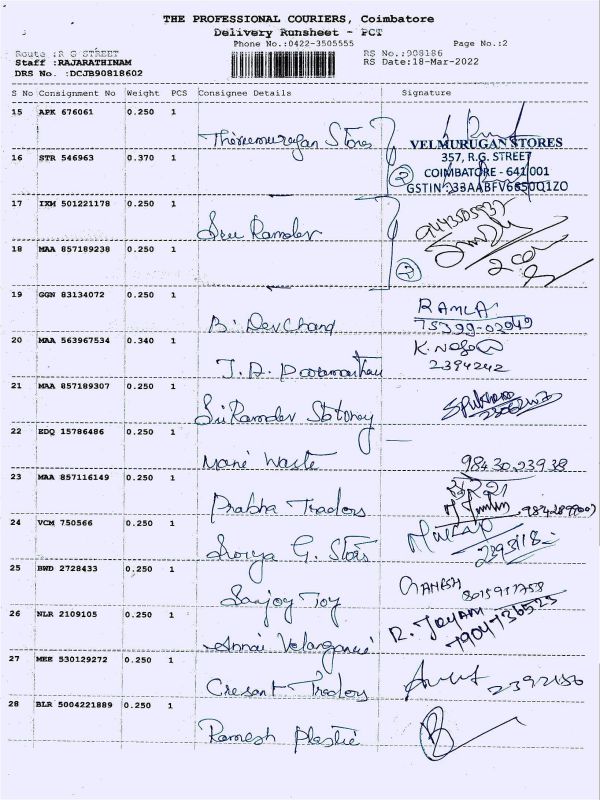 THE PROFESSIONAL COURIERS, Coimbatore
Delivery Runsheet - PCT
Phone No.:0422-3505555 Page No.:2
Route :R G STREET RS No.:908186
Staff :RAJARATHINAM RS Date:18-Mar-2022
DRS No. :DCJB90818602
S No Consignment No Weight PCS Consignee Details Signature
15 APK 676061 0.250 1
Thirumurugan Stores
VELMURUGAN STORES
16 STR 546963 0.370 1 357, R.G. STREET
COIMBATORE - 641 001
2 GSTIN 33AABFV6650Q1ZO
17 IXM 501221178 0.250 1
Sree Ramdev
18 MAA 857189238 0.250 1
2
19 GGN 83134072 0.250 1 RAMLA
B. DevChand 75399-02949
20 MAA 563967534 0.340 1
2394242
21 MAA 857189307 0.250 1
Sri Ramdev
22 EDQ 15786486 0.250 1
Mani Waste 98430 23938
23 MAA 857116149 0.250 1
Prabha Traders
24 VCM 750566 0.250 1
Stores
25 BWD 2728433 0.250 1 GANESH
Sanjay Toy
26 NLR 2109105 0.250 1 R. JAYAM
Annai 7904736525
27 MEE 530129272 0.250 1
Cresant Traders
28 BLR 5004221889 0.250 1
Ramesh Plastic